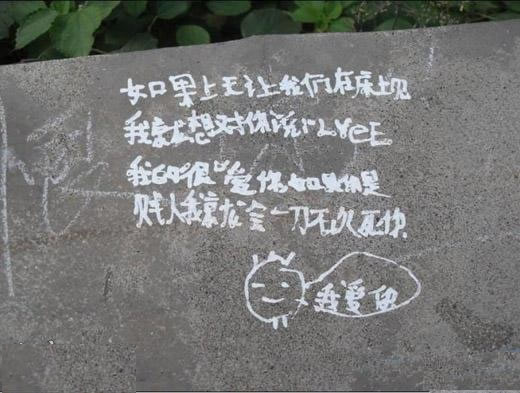 如果上天让我们在床上见
我就想对你说 I LVeE
我的"很"爱你如果你是
贱人我就会一刀砍死你
我爱你